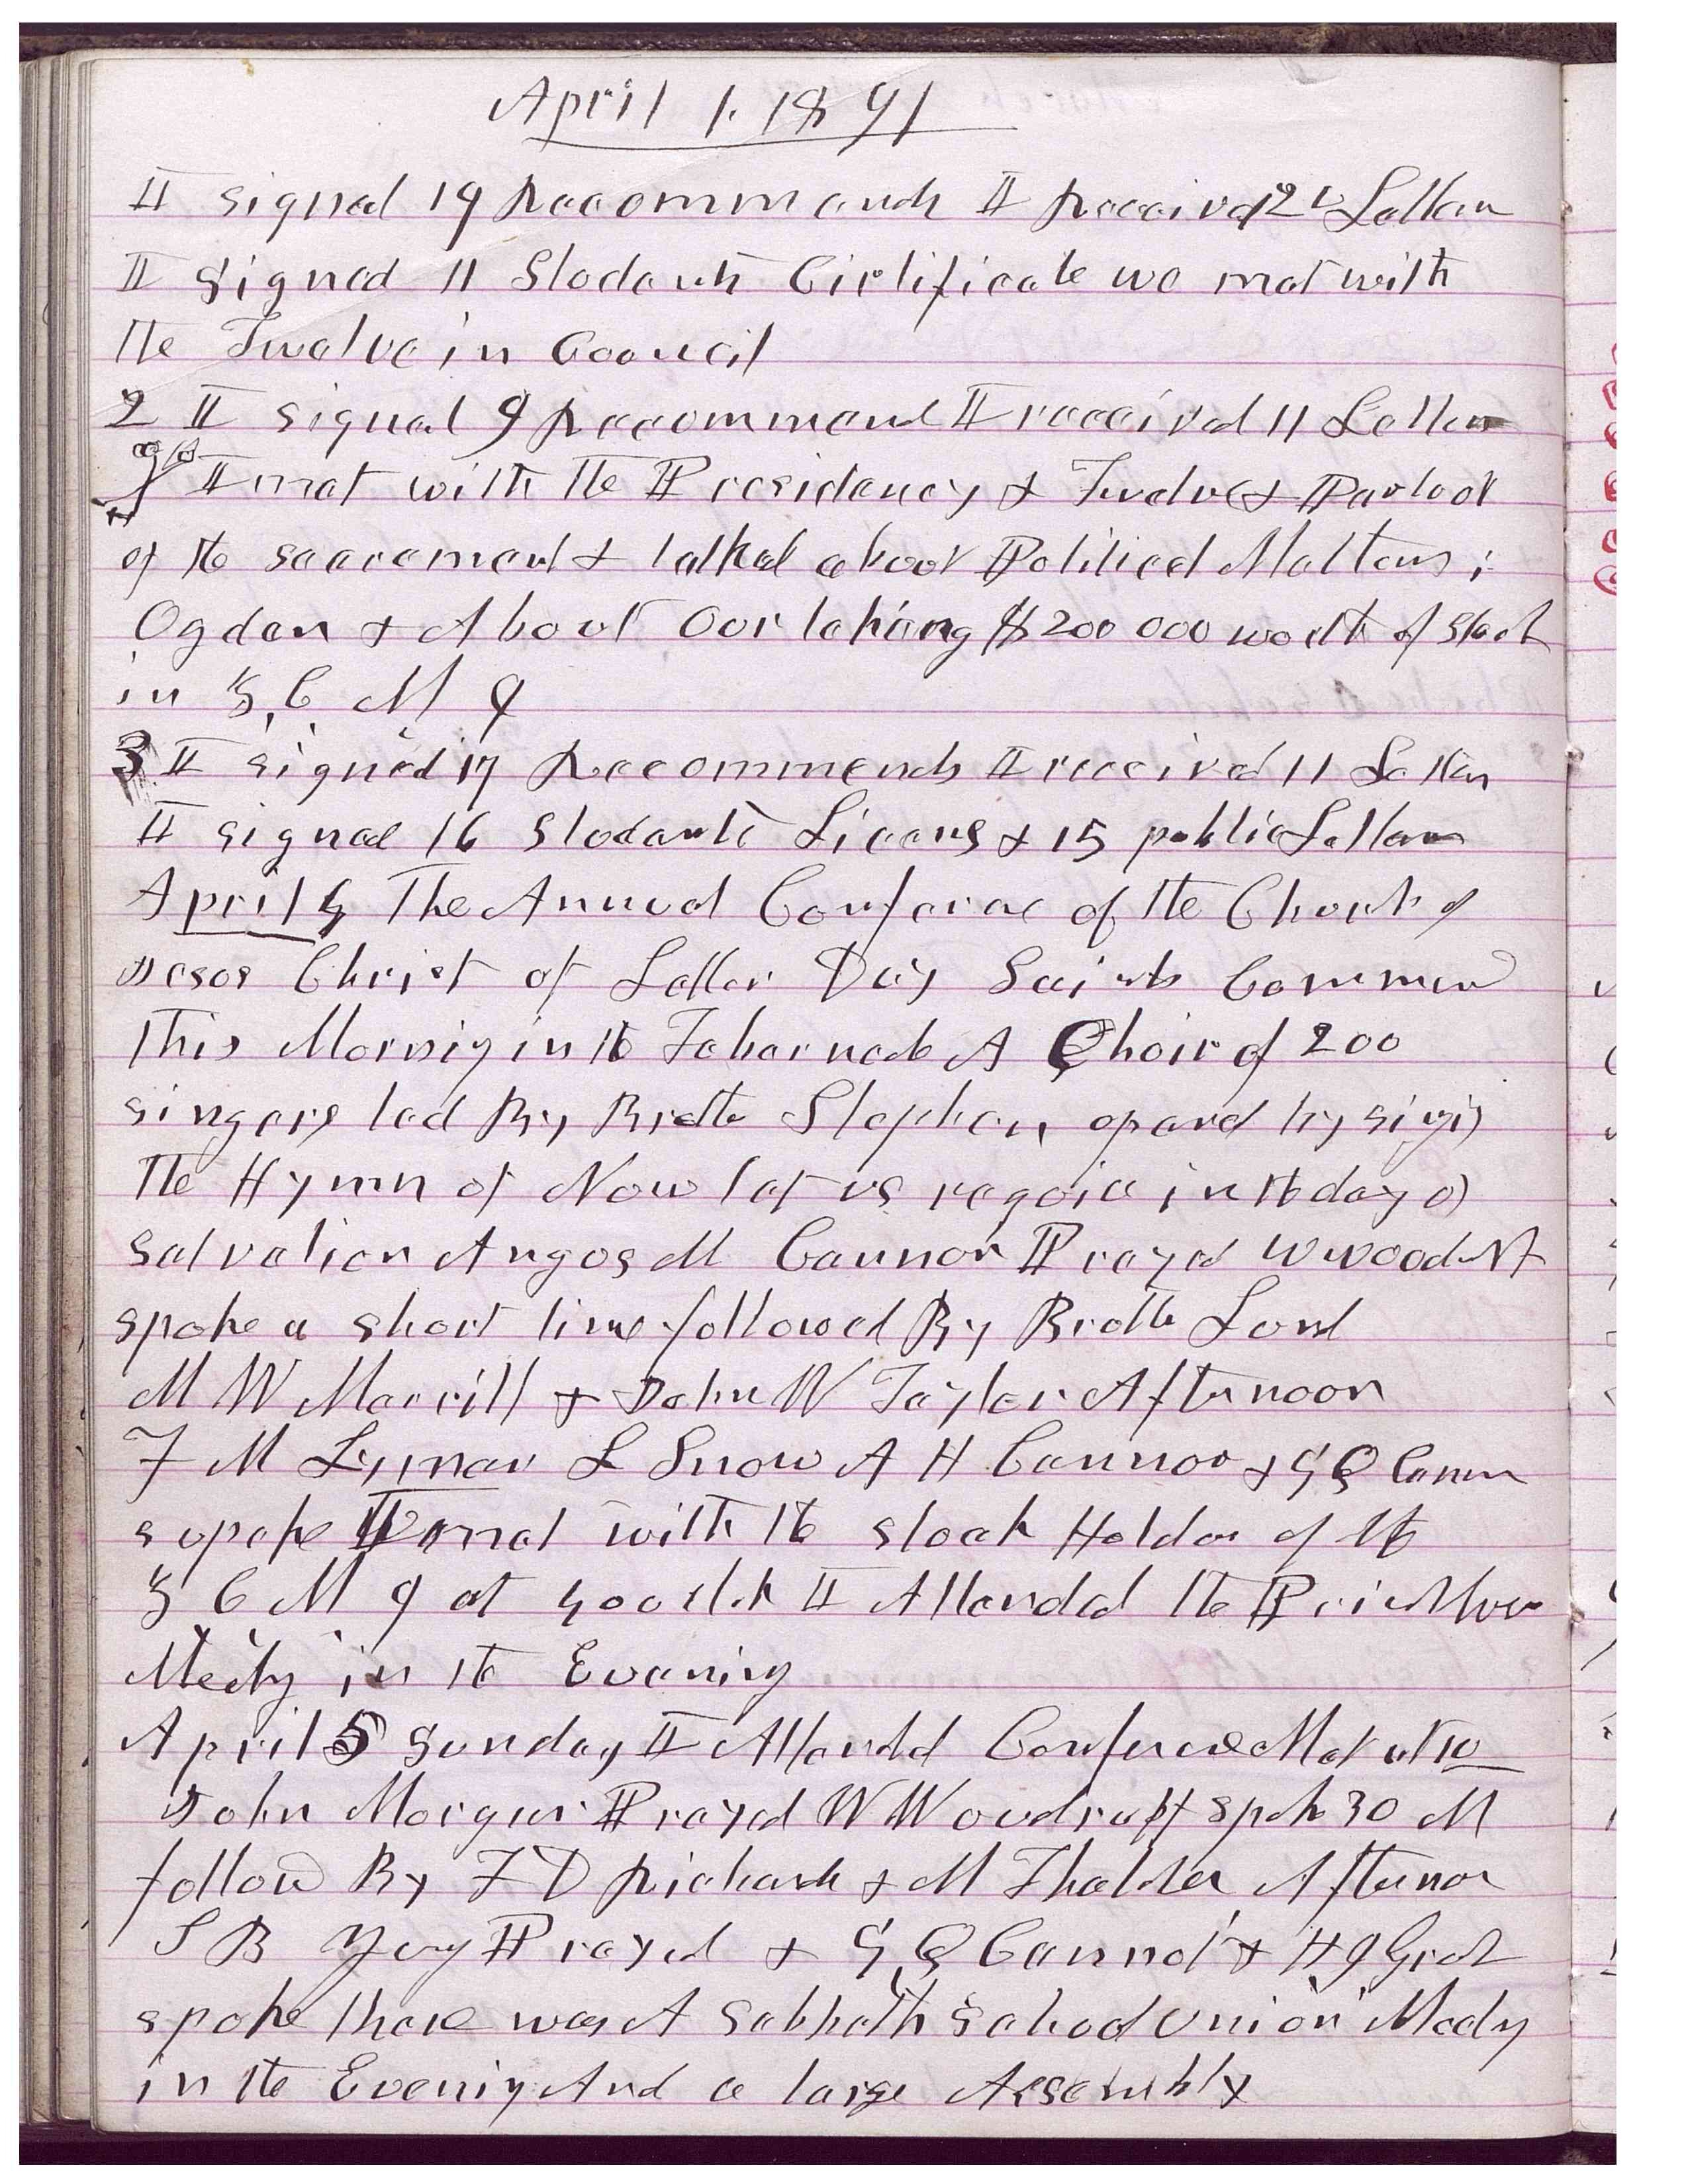 April 1. 1891
I signed 19 Recommends I Received 21 Letters
I signed 11 Stodents Cirtificate we met with
the Twelve in Council
2 I signed 9 Recommend I received 11 Letters
I met with the Presidency & Twelve & Partook
of the sacrament & talked about Political Matters;
Ogden & About Our taking $200 000 worth of Stock
in Z. C. M. I
3 I signed 17 Recommends I received 11 Letters
I signed 16 Stodents Licens & 15 public Letters
April 4 The Annual Conferenc of the Church of
Jesos Christ of Latter Day Saints Commenced
this Morning in the Tabernacle A Choir of 200
singers led By Brother Stephens opened by singing
the Hymn of Now let us rejoice in the day of
salvation Angos M Cannon Prayed W Woodruff
spoke a short time followed By Brother Lund
M W Merrill & John W Taylor Afternoon
F M Lyman L Snow A H Cannon & G Q Cannon
spoke I met with the stock Holders of the
Z C M I at 4 oclok I Attended the
Meeting in the Evening
April 5 Sunday I Attended Conference Met at 10
John Morgan Prayed W Woodruff spoke 30 M
followed By F D Richards & M Thatcher Afternoon
S B Young Prayed & G Q Cannon & H J Grant
spoke there was A Sabbath School Union Meeting
in the Evening And a large Assembly